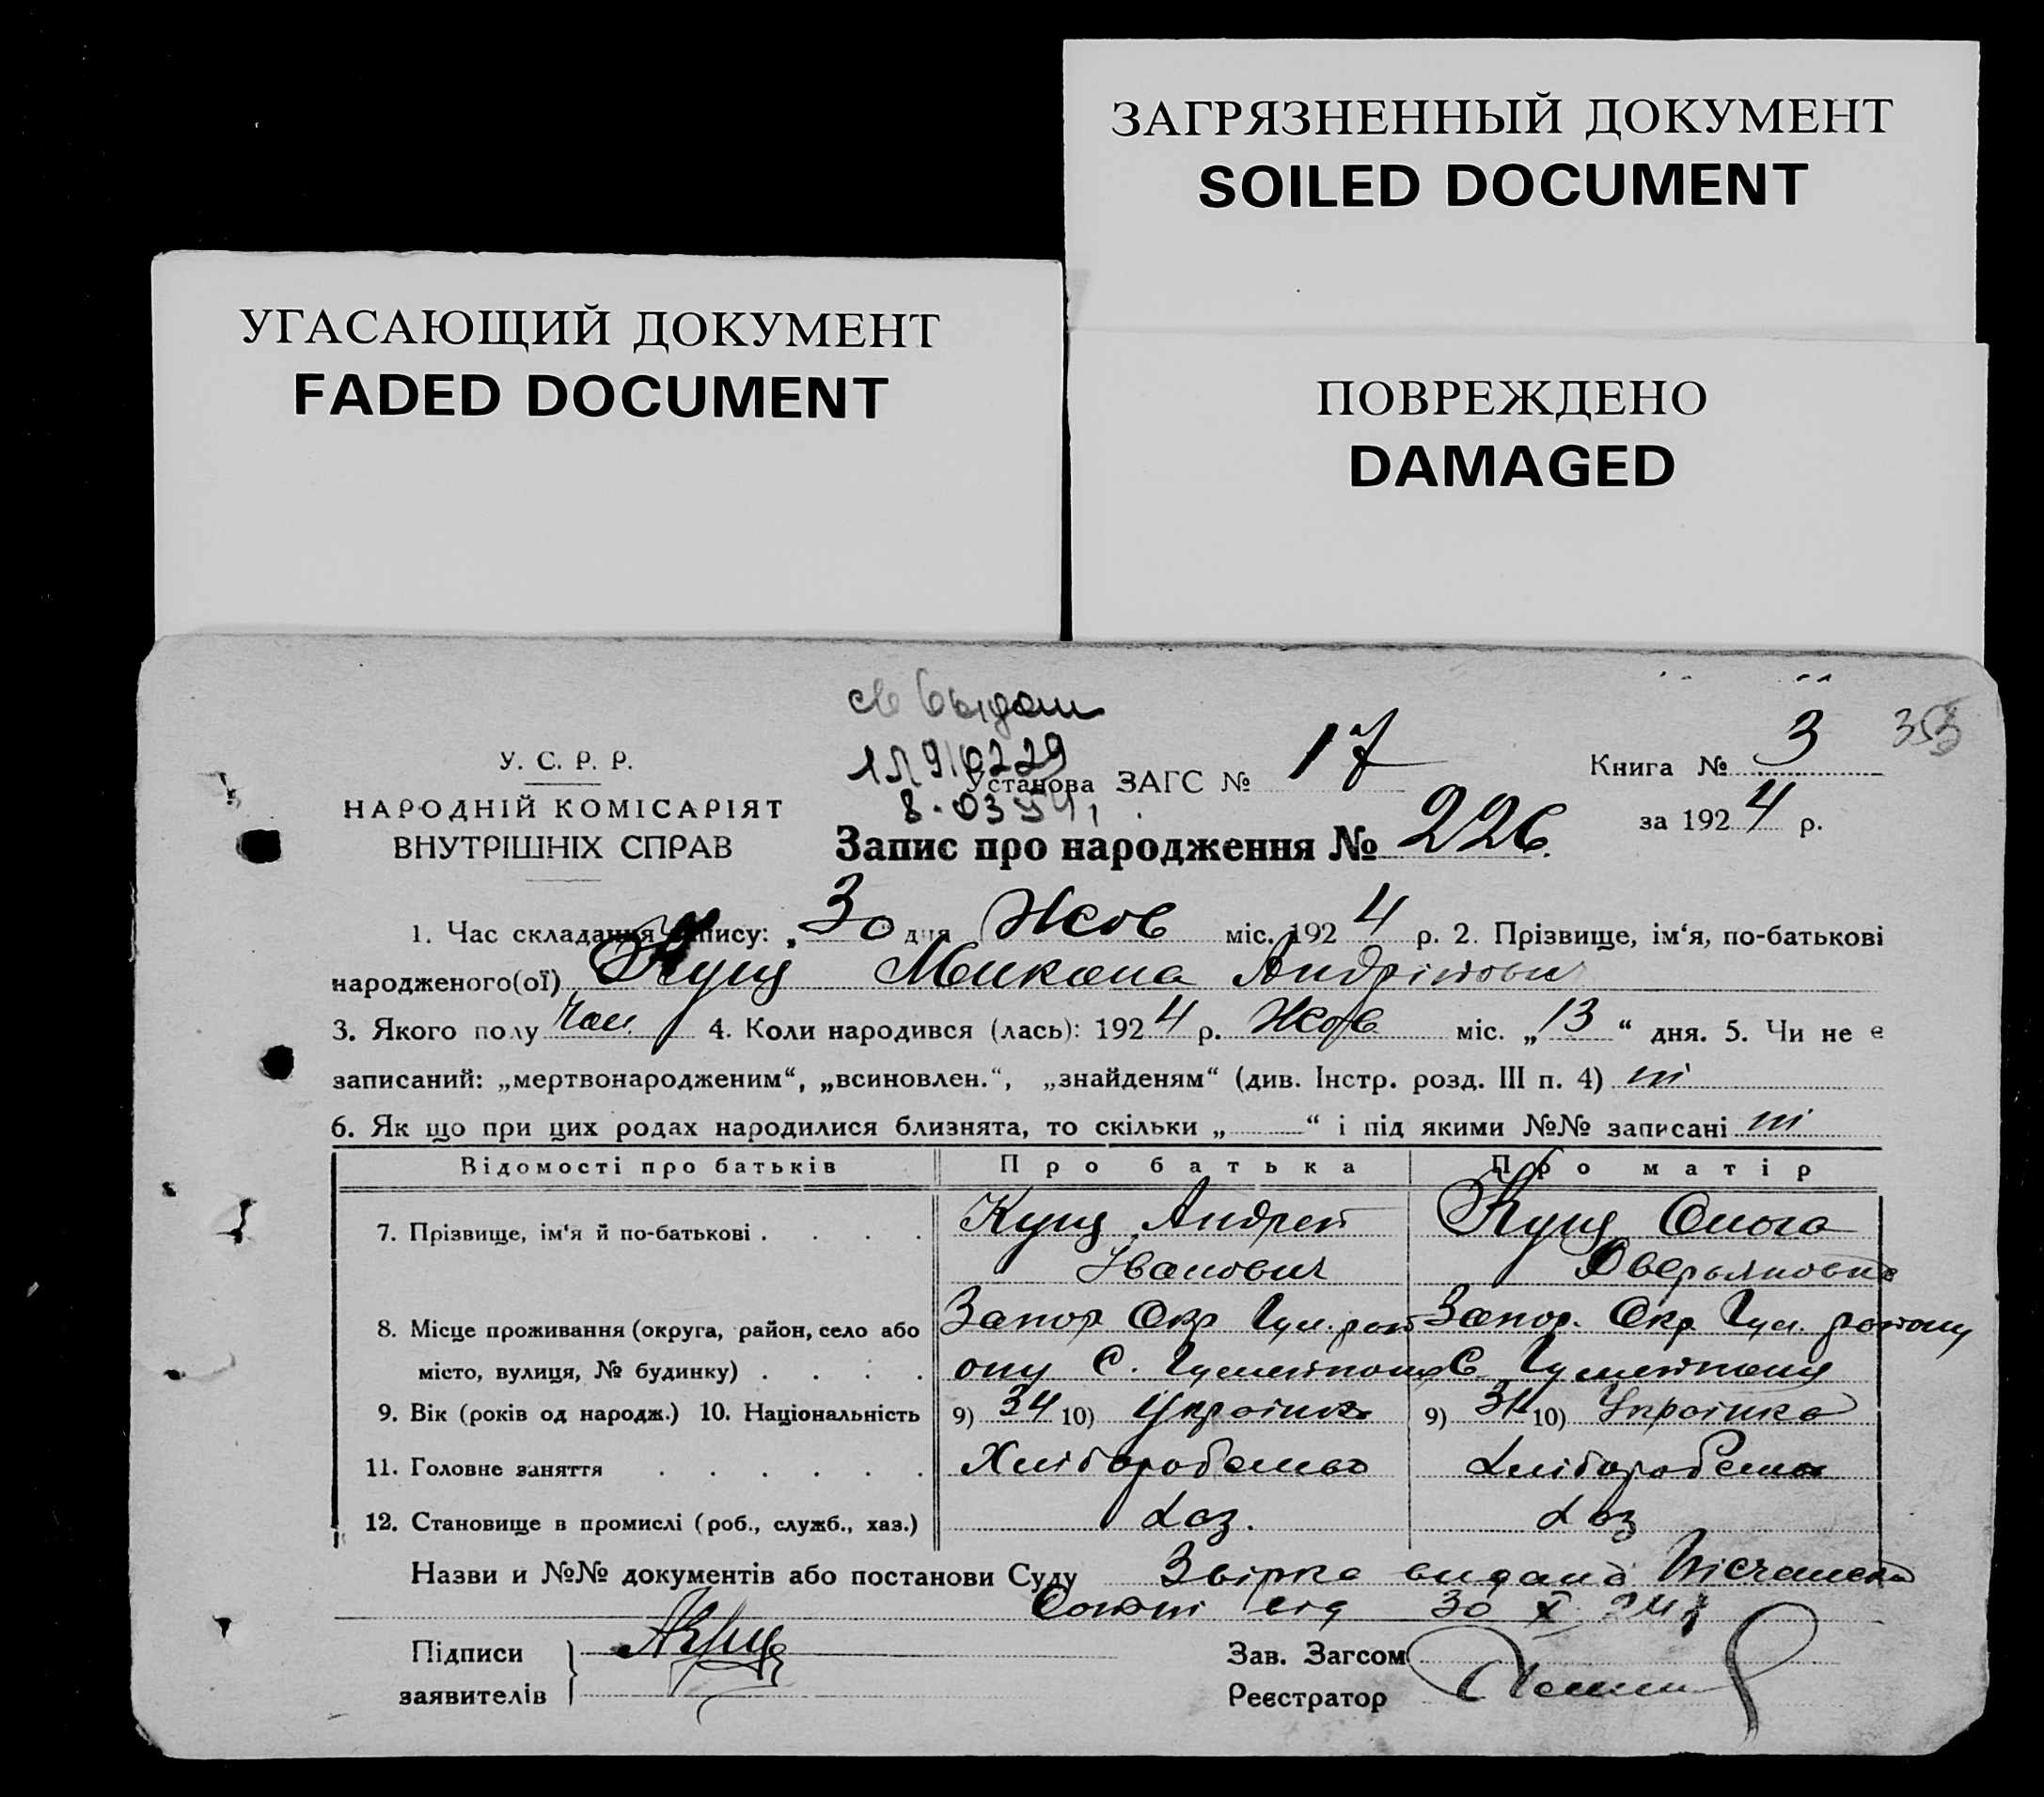 ЗАГРЯЗНЕННЫЙ ДОКУМЕНТ
SOILED DOCUMENT
УГАСАЮЩИЙ ДОКУМЕНТ
FADED DOCUMENT
ПОВРЕЖДЕНО
DAMAGED
353
У. С. Р. Р.
НАРОДНІЙ КОМІСАРІЯТ
ВНУТРІШНІХ СПРАВ
Установа ЗАГС № 17
Книга № 3
за 1924 р.
Запис про народження № 226
1. Час складання запису: „30 дня Жов міс. 1924 р. 2. Прізвище, ім‘я, по-батькові
народженого(ої) Кущ Микола Андрійович
3. Якого полу Чол. 4. Коли народився (лась): 1924 р. Жов міс. „13“ дня. 5. Чи не є
записаний: „мертвонародженим“, „всиновлен.“, „знайденям“ (див. Інстр. розд. III п. 4) ні
6. Як що при цих родах народилися близнята, то скільки „ “ і під якими №№ записані ні
Відомості про батьків Про батька Про матір
7. Прізвище, ім‘я й по-батькові . . . . Кущ Андрей Кущ Ольга
Іванович Оверьяновна
8. Місце проживання (округа, район, село або Запор Окр Гул. рай Запор. Окр Гул. району
місто, вулиця, № будинку) . . . . ону С. Гуляйполе С. Гуляйполе
9. Вік (років од народж.) 10. Національність 9) 34 10) Українець 9) 31 10) Українка
11. Головне заняття . . . . . . Хліборобство Хліборобство
12. Становище в промислі (роб., служб., хаз.) Хаз. Хаз
Назви и №№ документів або постанови Суду видана
від 30 X 24
Підписи
заявителів
Зав. Загсом
Реєстратор